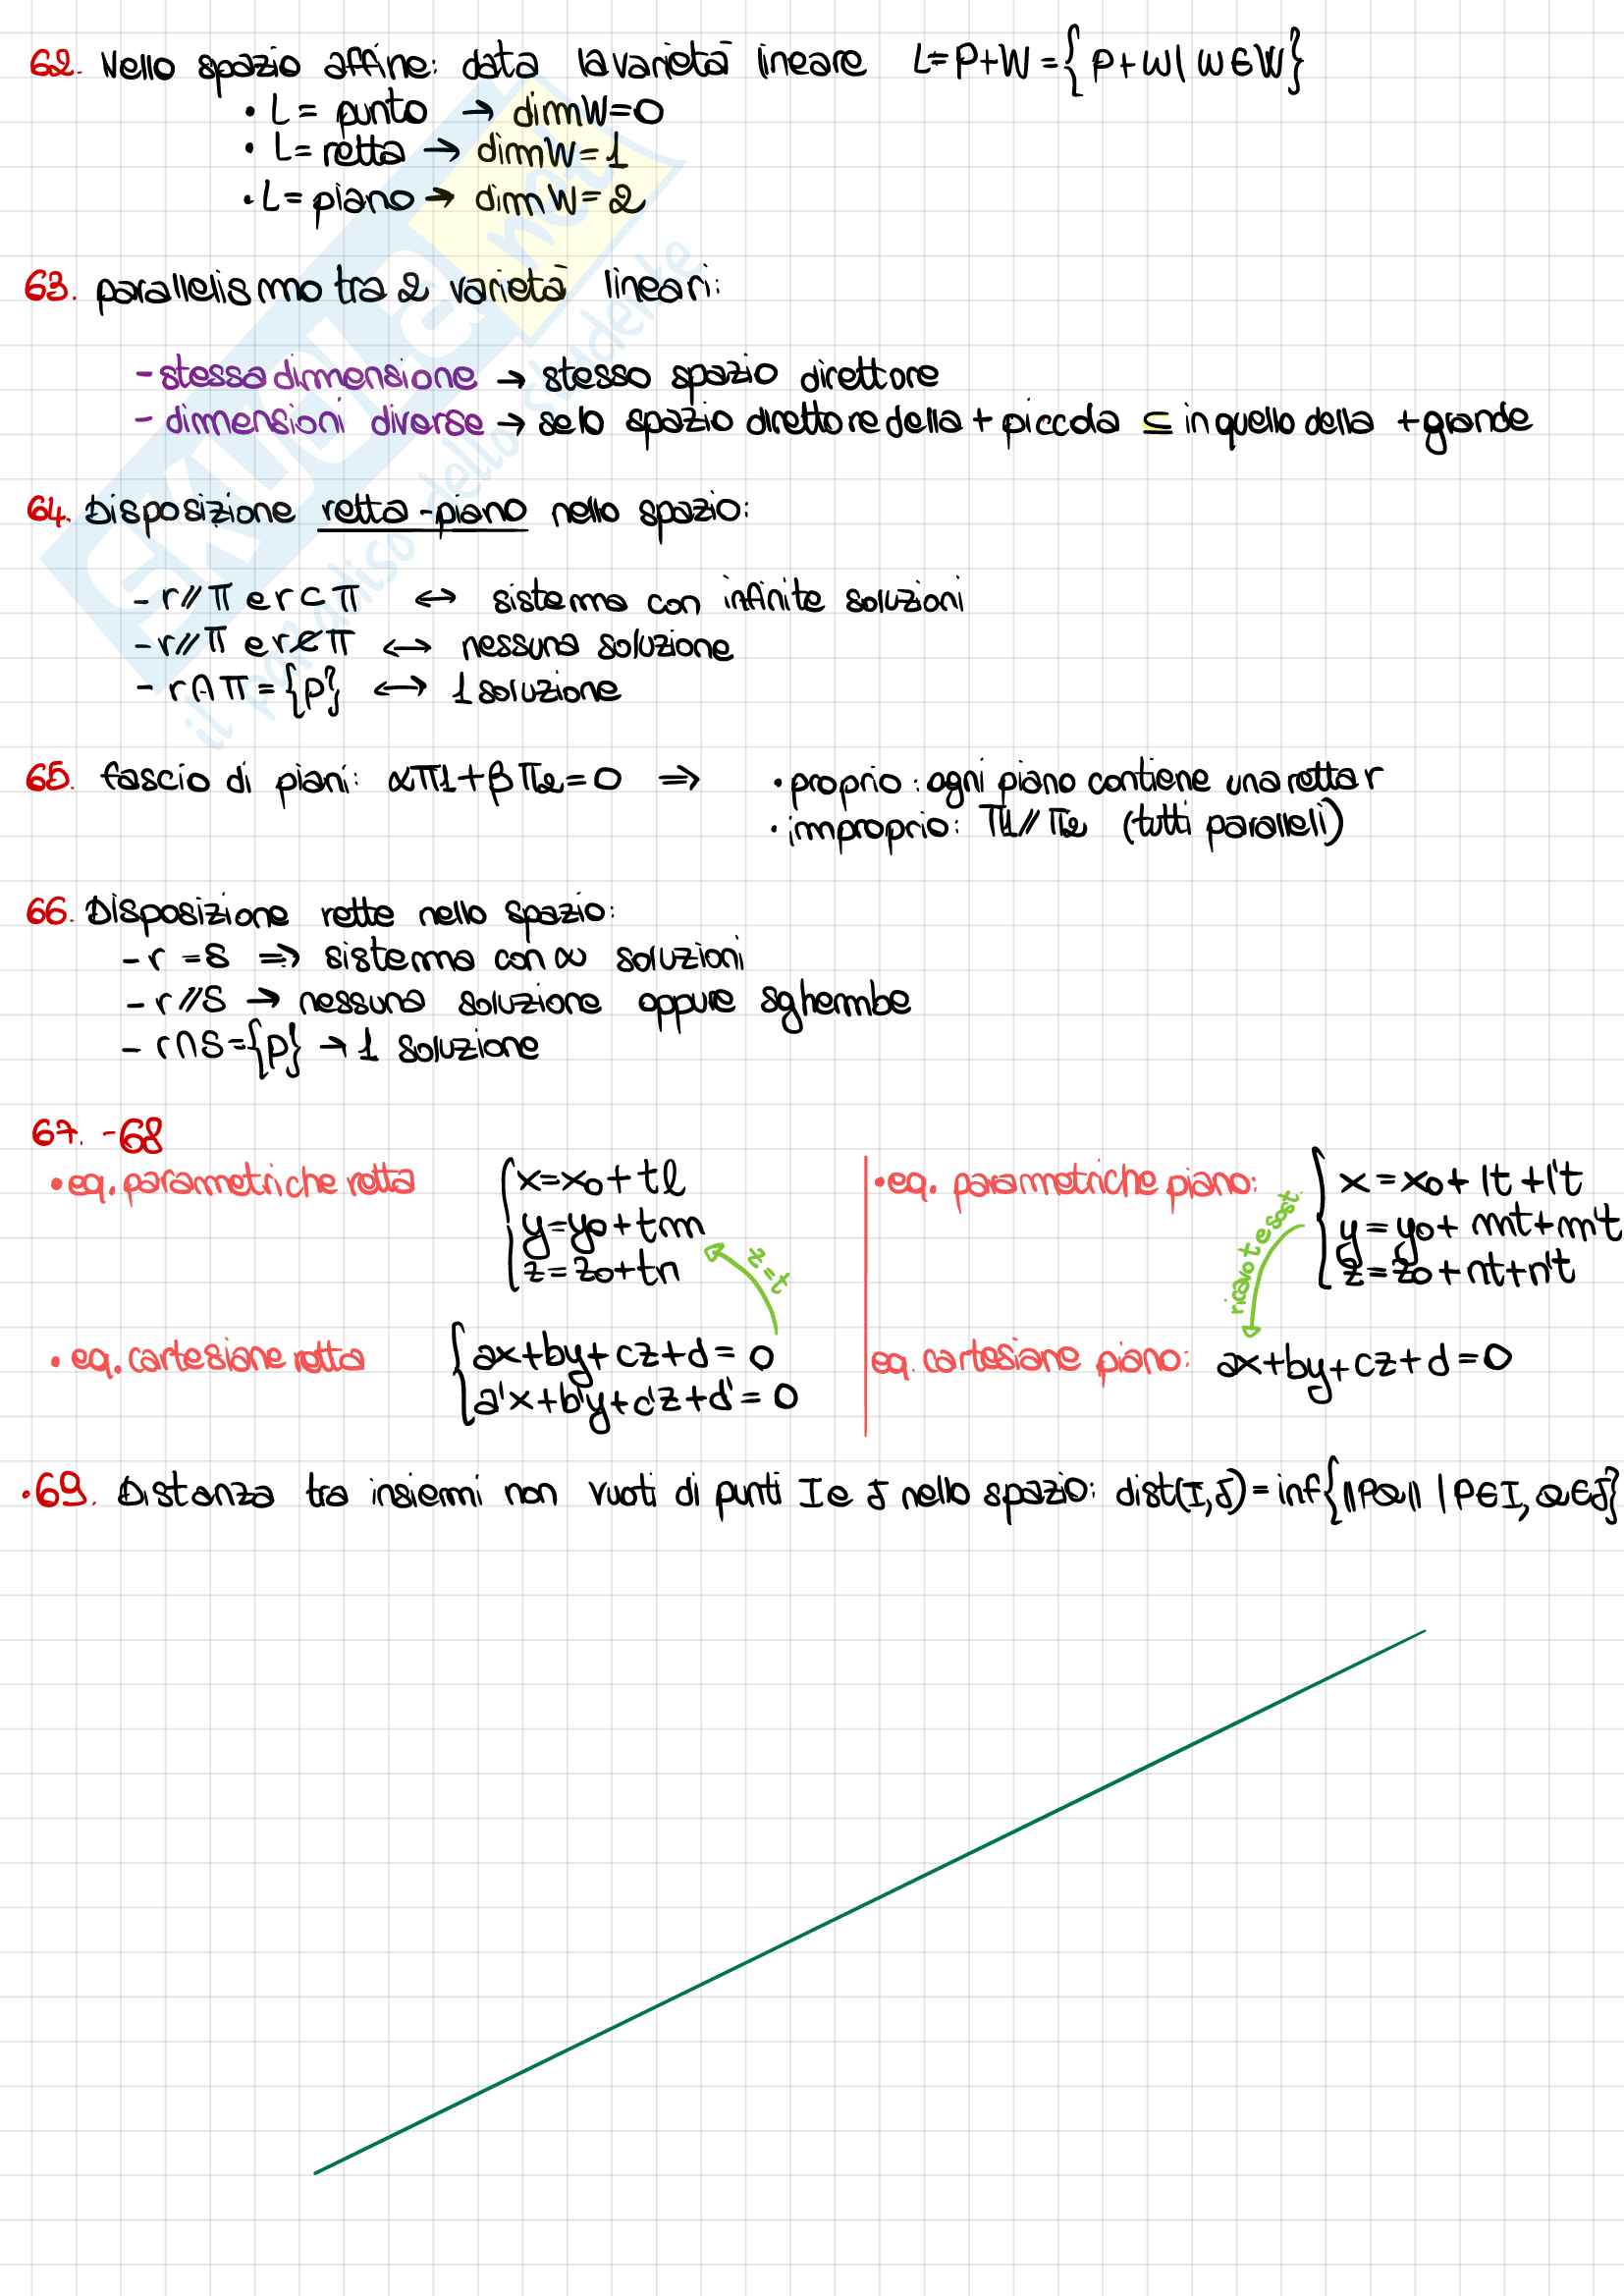 62. Nello spazio affine: data la varietà lineare L=P+W={P+w | w∈W}
• L= punto → dimW=0
• L= retta → dimW=1
• L= piano → dimW=2
63. parallelismo tra 2 varietà lineari:
- stessa dimensione → stesso spazio direttore
- dimensioni diverse → se lo spazio direttore della + piccola ⊆ in quello della + grande
64. Disposizione retta-piano nello spazio:
- r // π e r ⊂ π ↔ sistema con infinite soluzioni
- r // π e r ⊄ π ↔ nessuna soluzione
- r ∩ π = {p} ↔ 1 soluzione
65. fascio di piani: απ1+βπ2=0 ⇒ • proprio: ogni piano contiene una retta r
• improprio: π1 // π2 (tutti paralleli)
66. Disposizione rette nello spazio:
- r = s ⇒ sistema con ∞ soluzioni
- r // s → nessuna soluzione oppure sghembe
- r∩s={p} → 1 soluzione
67. -68
• eq. parametriche retta
x=x0+tl
y=y0+tm
z=z0+tn
z=t
• eq. cartesiane retta
ax+by+cz+d=0
a'x+b'y+c'z+d'=0
• eq. parametriche piano:
x=x0+lt+l't
y=y0+mt+m't
z=z0+nt+n't
ricavo t e sost.
eq. cartesiane piano: ax+by+cz+d=0
• 69. Distanza tra insiemi non vuoti di punti I e J nello spazio: dist(I,J)=inf{||PQ|| | P∈I, Q∈J}
SKUOLA.net
il paradiso dello studente